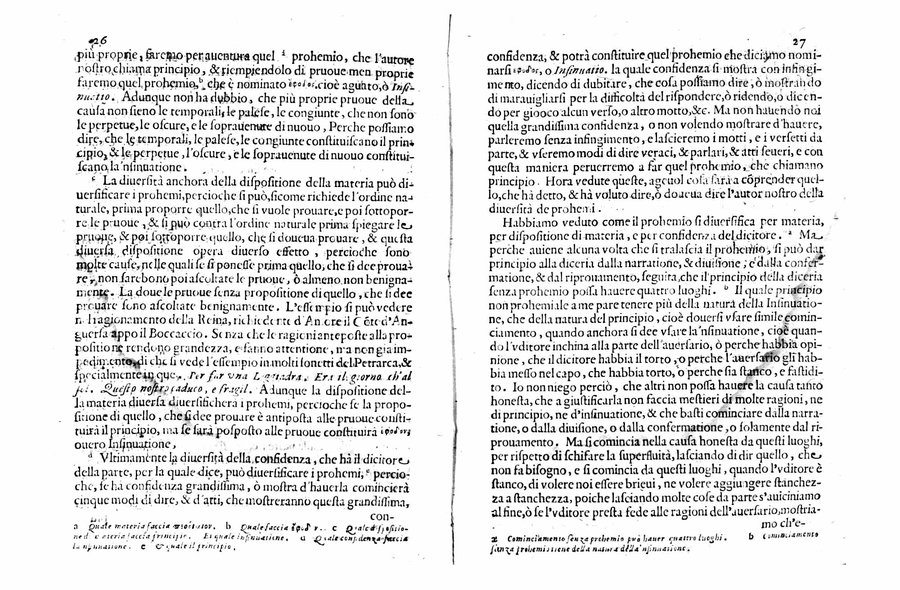 26
più proprie, faremo per auentura quel ª prohemio, che l'autore
nostro chiama principio, & riempiendolo di pruoue men proprie
faremo quel prohemio, ᵇ che è nominato ἔφοδος, cioè aguato, ò Inſi-
nuatio. Adunque non ha dubbio, che più proprie pruoue della
cauſa non ſieno le temporali, le paleſe, le congiunte, che non ſono
le perpetue, le oſcure, e le ſoprauenute di nuouo, Perche poſſiamo
dire, che le temporali, le paleſe, le congiunte conſtituiſcano il prin-
cipio, & le perpetue, l'oſcure, e le ſoprauenute di nuouo conſtitui-
ſcano la'nſinuatione.
ᶜ La diuerſità anchora della diſpoſitione della materia può di-
uerſificare i prohemi, percioche ſi può, ſicome richiede l'ordine na-
turale, prima proporre quello, che ſi vuole prouare, e poi ſottopor-
re le pruoue, & ſi può contra l'ordine naturale prima ſpiegare le
pruoue, & poi ſottoporre quello, che ſi doueua prouare, & queſta
diuerſa diſpoſitione opera diuerſo effetto, percioche ſono
molte cauſe, nelle quali ſe ſi poneſſe prima quello, che ſi dee proua-
re, non ſarebono poi aſcoltate le pruoue, ò almeno non benigna-
mente. La doue le pruoue ſenza propoſitione di quello, che ſi dee
prouare ſono aſcoltate benignamente. L'eſſempio ſi può vedere
nel ragionamento della Reina, richiedente d'Amore il Côte d'An-
guerſa appo il Boccaccio. Senza che le ragioni antepoſte alla pro-
poſitione rendono grandezza, e fanno attentione, ma non gia im-
pedimento, di che ſi vede l'eſſempio in molti ſonetti del Petrarca, &
ſpecialmente in que, Per far vna leggiadra. Era il giorno ch'al
ſol. Queſto noſtro caduco, e fragil. Adunque la diſpoſitione del-
la materia diuerſa diuerſificherà i prohemi, percioche ſe la propo-
ſitione di quello, che ſi dee prouare è antipoſta alle pruoue conſti-
tuirà il principio, ma ſe ſarà poſpoſto alle pruoue conſtituirà ἔφοδος
ouero Inſinuatione,
ᵈ Vltimamente la diuerſità della confidenza, che hà il dicitore
della parte, per la quale dice, può diuerſificare i prohemi, percio-
che, ſe hà confidenza grandiſſima, ò moſtra d'hauerla comincierà
cinque modi di dire, & d'atti, che moſtreranno queſta grandiſſima,
con-
a Quale materia faccia b Quale faccia ἔφοδος. c Quale diſpoſitio-
ne d'materia faccia principio. Et quale inſinuatione. d Quale confidenza faccia
la nſinuatione. e quale il principio.
27
confidenza, & potrà conſtituire quel prohemio che diciamo nomi-
narſi ἔφοδος, o Inſinuatio. la quale confidenza ſi moſtra con infingi-
mento, dicendo di dubitare, che coſa poſſiamo dire, ò moſtrando
di marauigliarſi per la difficoltà del riſpondere, ò ridendo, o dicen-
do per giooco alcun verſo, o altro motto, &c. Ma non hauendo noi
quella grandiſſima confidenza, o non volendo moſtrare d'hauere,
parleremo ſenza infingimento, e laſcieremo i motti, e i verſetti da
parte, & vſeremo modi di dire veraci, & parlari, & atti ſeueri, e con
queſta maniera peruerremo a far quel prohemio, che chiamano
principio. Hora vedute queſte, ageuol coſa ſarà a côprender quel-
lo, che hà detto, & hà voluto dire, ò doueua dire l'autor noſtro della
diuerſità de prohemi.
Habbiamo veduto come il prohemio ſi diuerſifica per materia,
per diſpoſitione di materia, e per confidenza del dicitore. ª Ma
perche auiene alcuna volta che ſi tralaſcia il prohemio, ſi può dar
principio alla diceria dalla narratione, & diuiſione, e dalla confer-
matione, & dal riprouamento, ſeguita che il principio della diceria
ſenza prohemio poſſa hauere quattro luoghi. ᵇ Il quale principio
non prohemiale a me pare tenere più della natura della Inſinuatio-
ne, che della natura del principio, cioè douerſi vſare ſimile comin-
ciamento, quando anchora ſi dee vſare la'nſinuatione, cioè quan-
do l'vditore inchina alla parte dell'auerſario, ò perche habbia opi-
nione, che il dicitore habbia il torto, o perche l'auerſario gli hab-
bia meſſo nel capo, che habbia torto, o perche ſia ſtanco, e faſtidi-
to. Io non niego perciò, che altri non poſſa hauere la cauſa tanto
honeſta, che a giuſtificarla non faccia meſtieri di molte ragioni, ne
di principio, ne d'inſinuatione, & che baſti cominciare dalla narra-
tione, o dalla diuiſione, o dalla confermatione, o ſolamente dal ri-
prouamento. Ma ſi comincia nella cauſa honeſta da queſti luoghi,
per riſpetto di ſchifare la ſuperfluità, laſciando di dir quello, che
non fa biſogno, e ſi comincia da queſti luoghi, quando l'vditore è
ſtanco, di volere noi eſſere brieui, ne volere aggiungere ſtanchez-
za a ſtanchezza, poiche laſciando molte coſe da parte s'auiciniamo
al fine, ò ſe l'vditore preſta fede alle ragioni dell'auerſario, moſtria-
mo ch'e-
a Cominciamento ſenza prohemio può hauer quattro luoghi. b Cominciamento
ſenza prohemi tiene della natura della'nſinuatione.